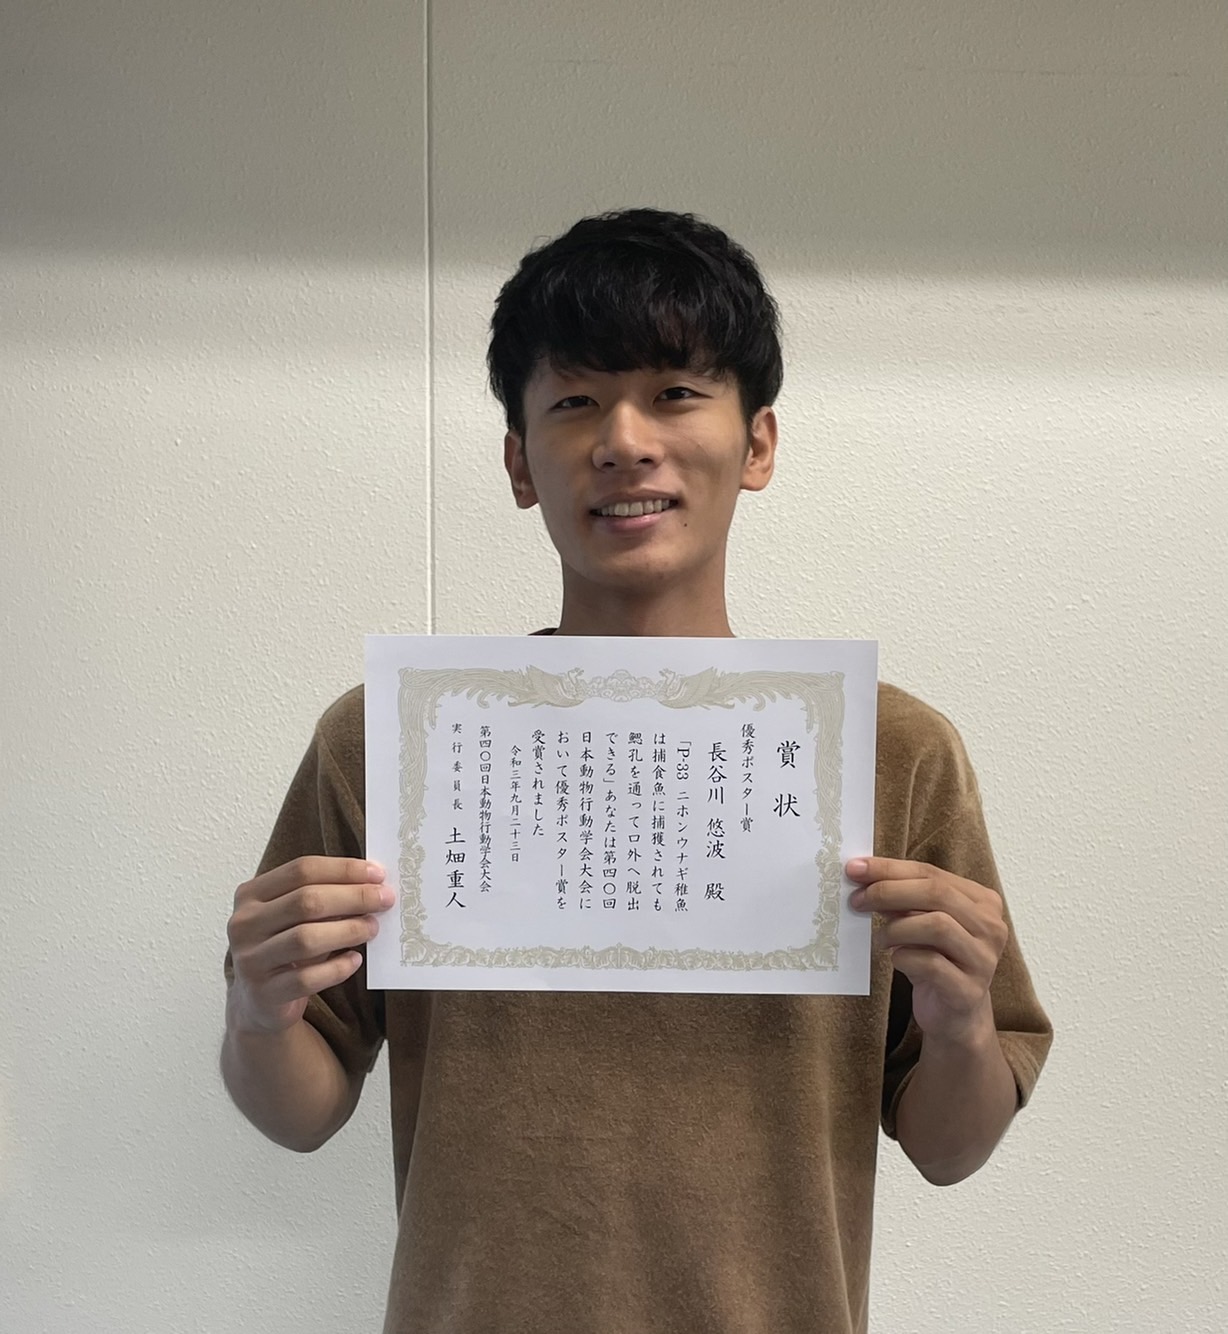 賞状
優秀ポスター賞
長谷川 悠波 殿
「P-33 ニホンウナギ稚魚
は捕食魚に捕獲されても
鰓孔を通って口外へ脱出
できる」あなたは第四〇回
日本動物行動学会大会に
おいて優秀ポスター賞を
受賞されました
令和三年九月二十三日
第四〇回日本動物行動学会大会
実行委員長 土畑重人